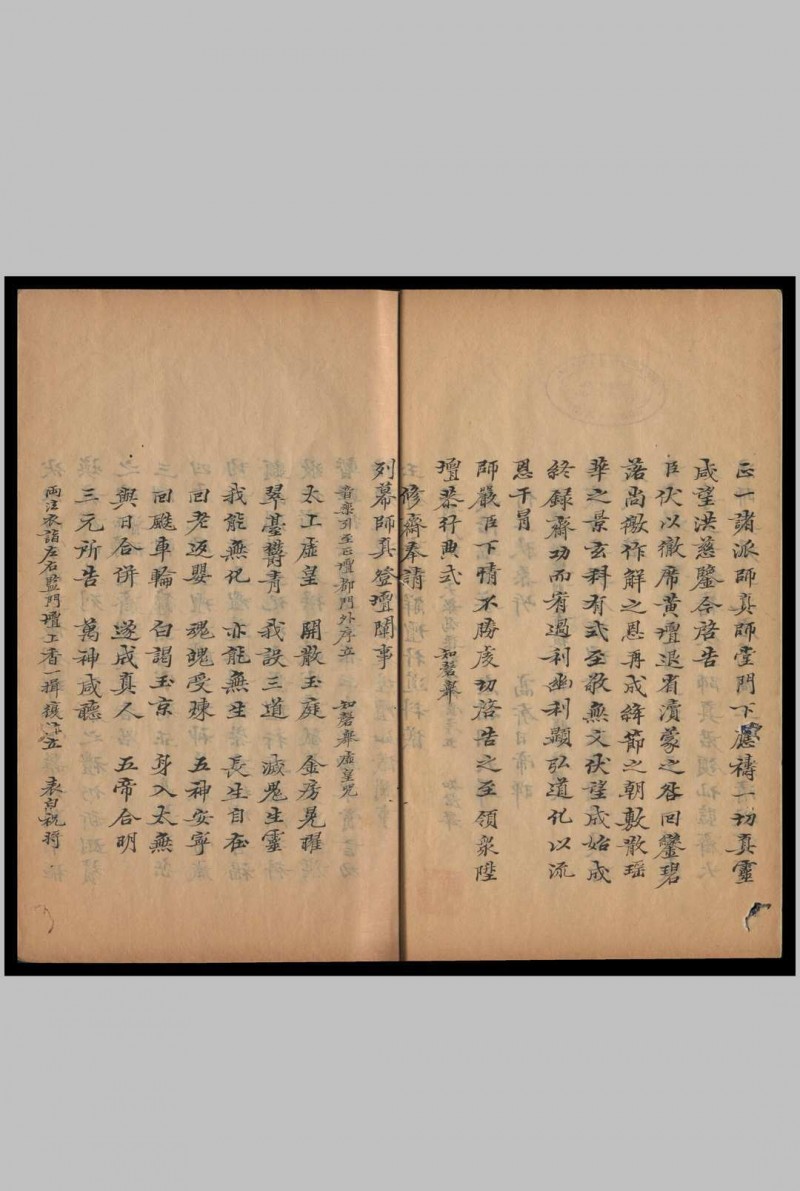 正一諸派師真師堂門下應禱一切真靈
咸望洪慈鑒合啓告
臣伏以徹席黃壇退省瀆蒙之咎回鑾碧
落尚徼作解之恩再成絳節之朝敷散瑶
華之景玄科有式至敬無文伏望成始成
終録齋功而宥過利幽利顯弘道化以流
恩干冒
師嚴臣下情不勝虔切啓告之至領衆陞
壇恭行典式 知磬舉
修齋奉請
列幕師真登壇闓事
音樂引至正壇都門外序立 知磬舉虛皇咒
太上虛皇 開散玉庭 金房晃曜
翠臺鬱青 我設三道 滅鬼生靈
我能無化 亦能無生 長生自在
回老返嬰 魂魄受煉 五神安寧
回飈車輪 白謁玉京 身入太無
與日合併 遂成真人 五帝合明
三元所告 萬神咸聽
兩注衣詣左右監門壇上香一揖復位立 表白祝將